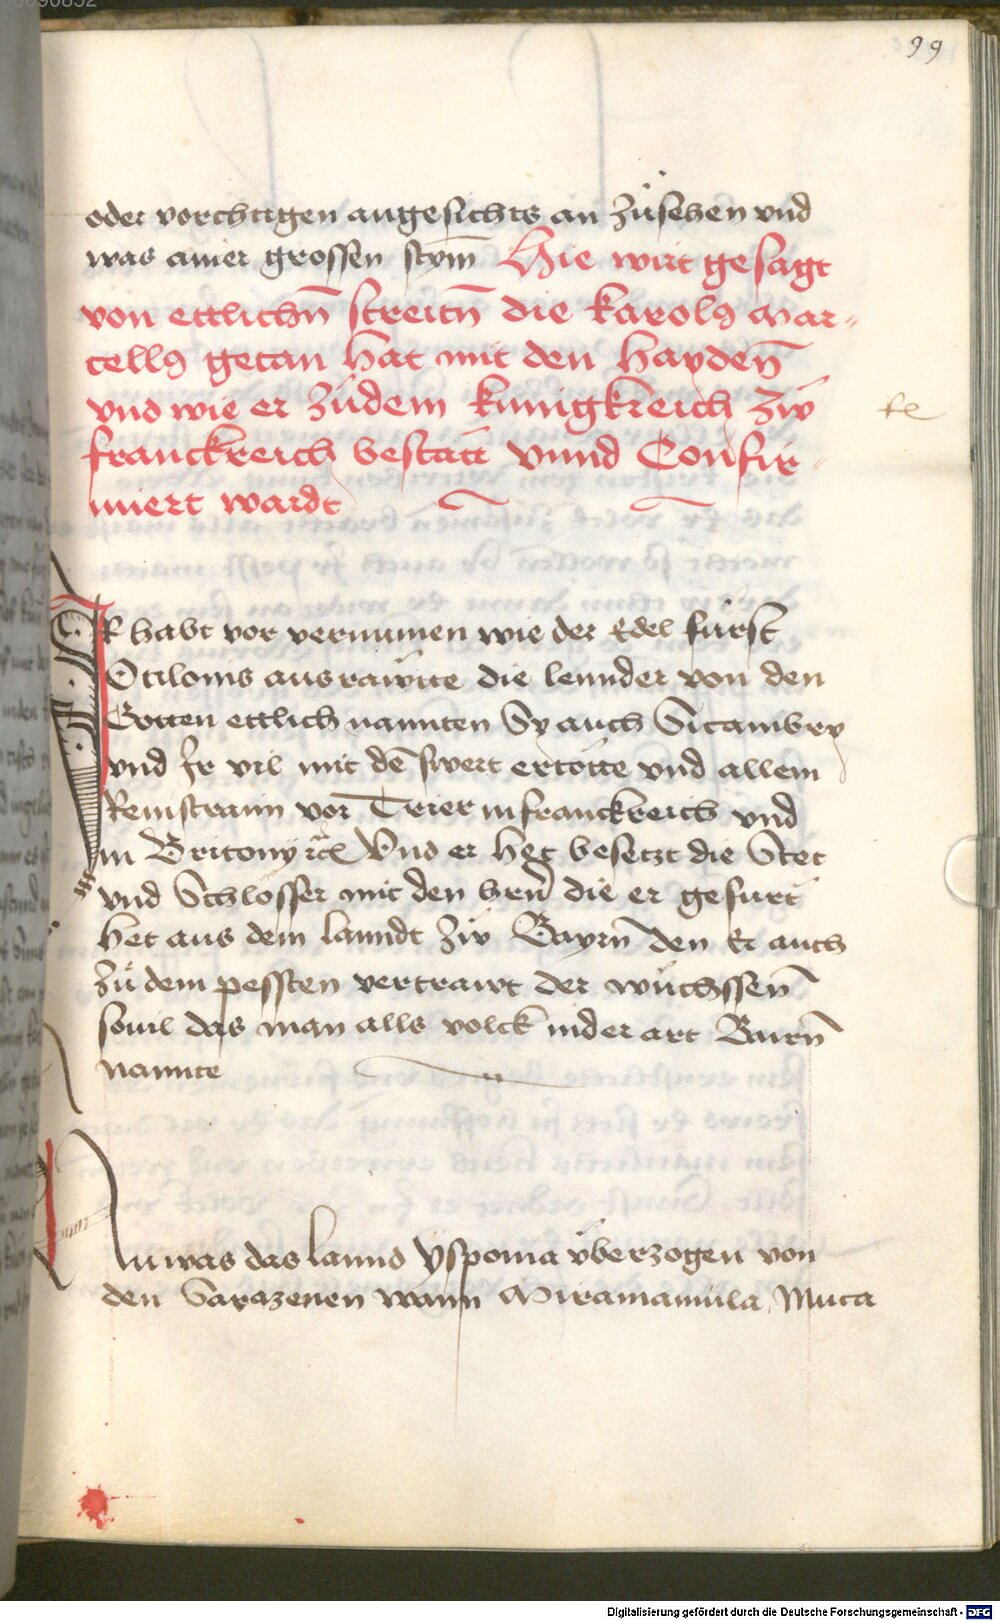 99
oder vorchtigen angesichts an zůsehen vnd
was ainer grossen stym̄ Hie wirt gesagt
von ettlichn̄ streitn̄ die karolꝰ Mar-
cellꝰ getan hat mit den hayden̄
vnd wie er zůdem kunigkreich zw
franckreich bestätt vnnd Confir-
miert wardt
IR habt vor vernumen wie der Edel fürst
Otilonis ausrawtte die lennder von den
Gotten ettlich nannten Sy auch Sicambry
vnd Ir vil mit dē swert ertötte vnd allem
Reinstraim vor Trier in franckreich vnd
in Britony ꝛc Vnd er het besetzt die Stet
vnd Schlösser mit den hern̄ die er gefürt
het aus dem lanndt zw Bayrn̄ den Er auch
zů dem pessten vertrawt der wuchssen̄
souil das man alls volck in der art Bairn̄
nannte
Nu was das lannd ysponia vberzogen von
den Sarazenen wann Miramamula Muta
Digitalisierung gefördert durch die Deutsche Forschungsgemeinschaft - DFG